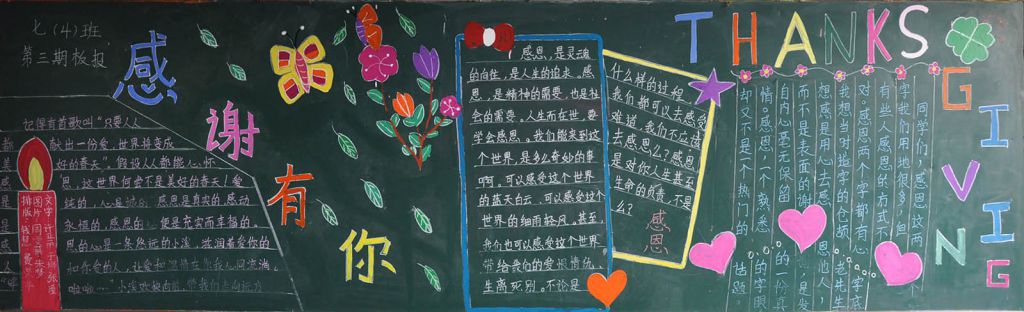 七(4)班
第三期板报
感谢有你
记得有首歌叫“只要人人
都 献出一份爱,世界将变成
美 好的春天”。假设人人都能心怀
感 恩,这世界何尝不是美好的春天!爱
是 纯的,心是 感恩是真实的,感动
是 永恒的,感恩的心 便是充实而幸福的,
感恩的心是一条悠远的小溪,滋润着爱你的
和你爱的人,让爱和温情在你我心间流淌,
小溪欢快向前,带我们走向远方
感恩,是灵魂
的向往,是人生的追求。感
恩,是精神的需要,也是社
会的需要。人生而在世,要
学会感恩。我们能来到这
个世界,是多么奇妙的事
啊。可以感受这个世界
的蓝天白云,可以感受这个
世界的细雨轻风,甚至,
我们也可以感受这个世界
带给我们的爱恨情仇,
生离死别。不论是
什么样的过程,
我们都可以去感恩
难道,我们不应该
去感恩么?感恩
是对你人生甚至
生命的负责,不是
么?
感恩
THANKS
GIVING
同学们,感恩这两个
字我们用地很多,但
有些人感恩的方式不
对。感恩两个字都有心字底
我想当时造字的仓颉老先生
想感恩是用心去感恩他人,
而不是表面的谢 是发
自内心毫无保留的一份真
情。感恩,一个熟悉的字眼
却又不是一个热门的话题。